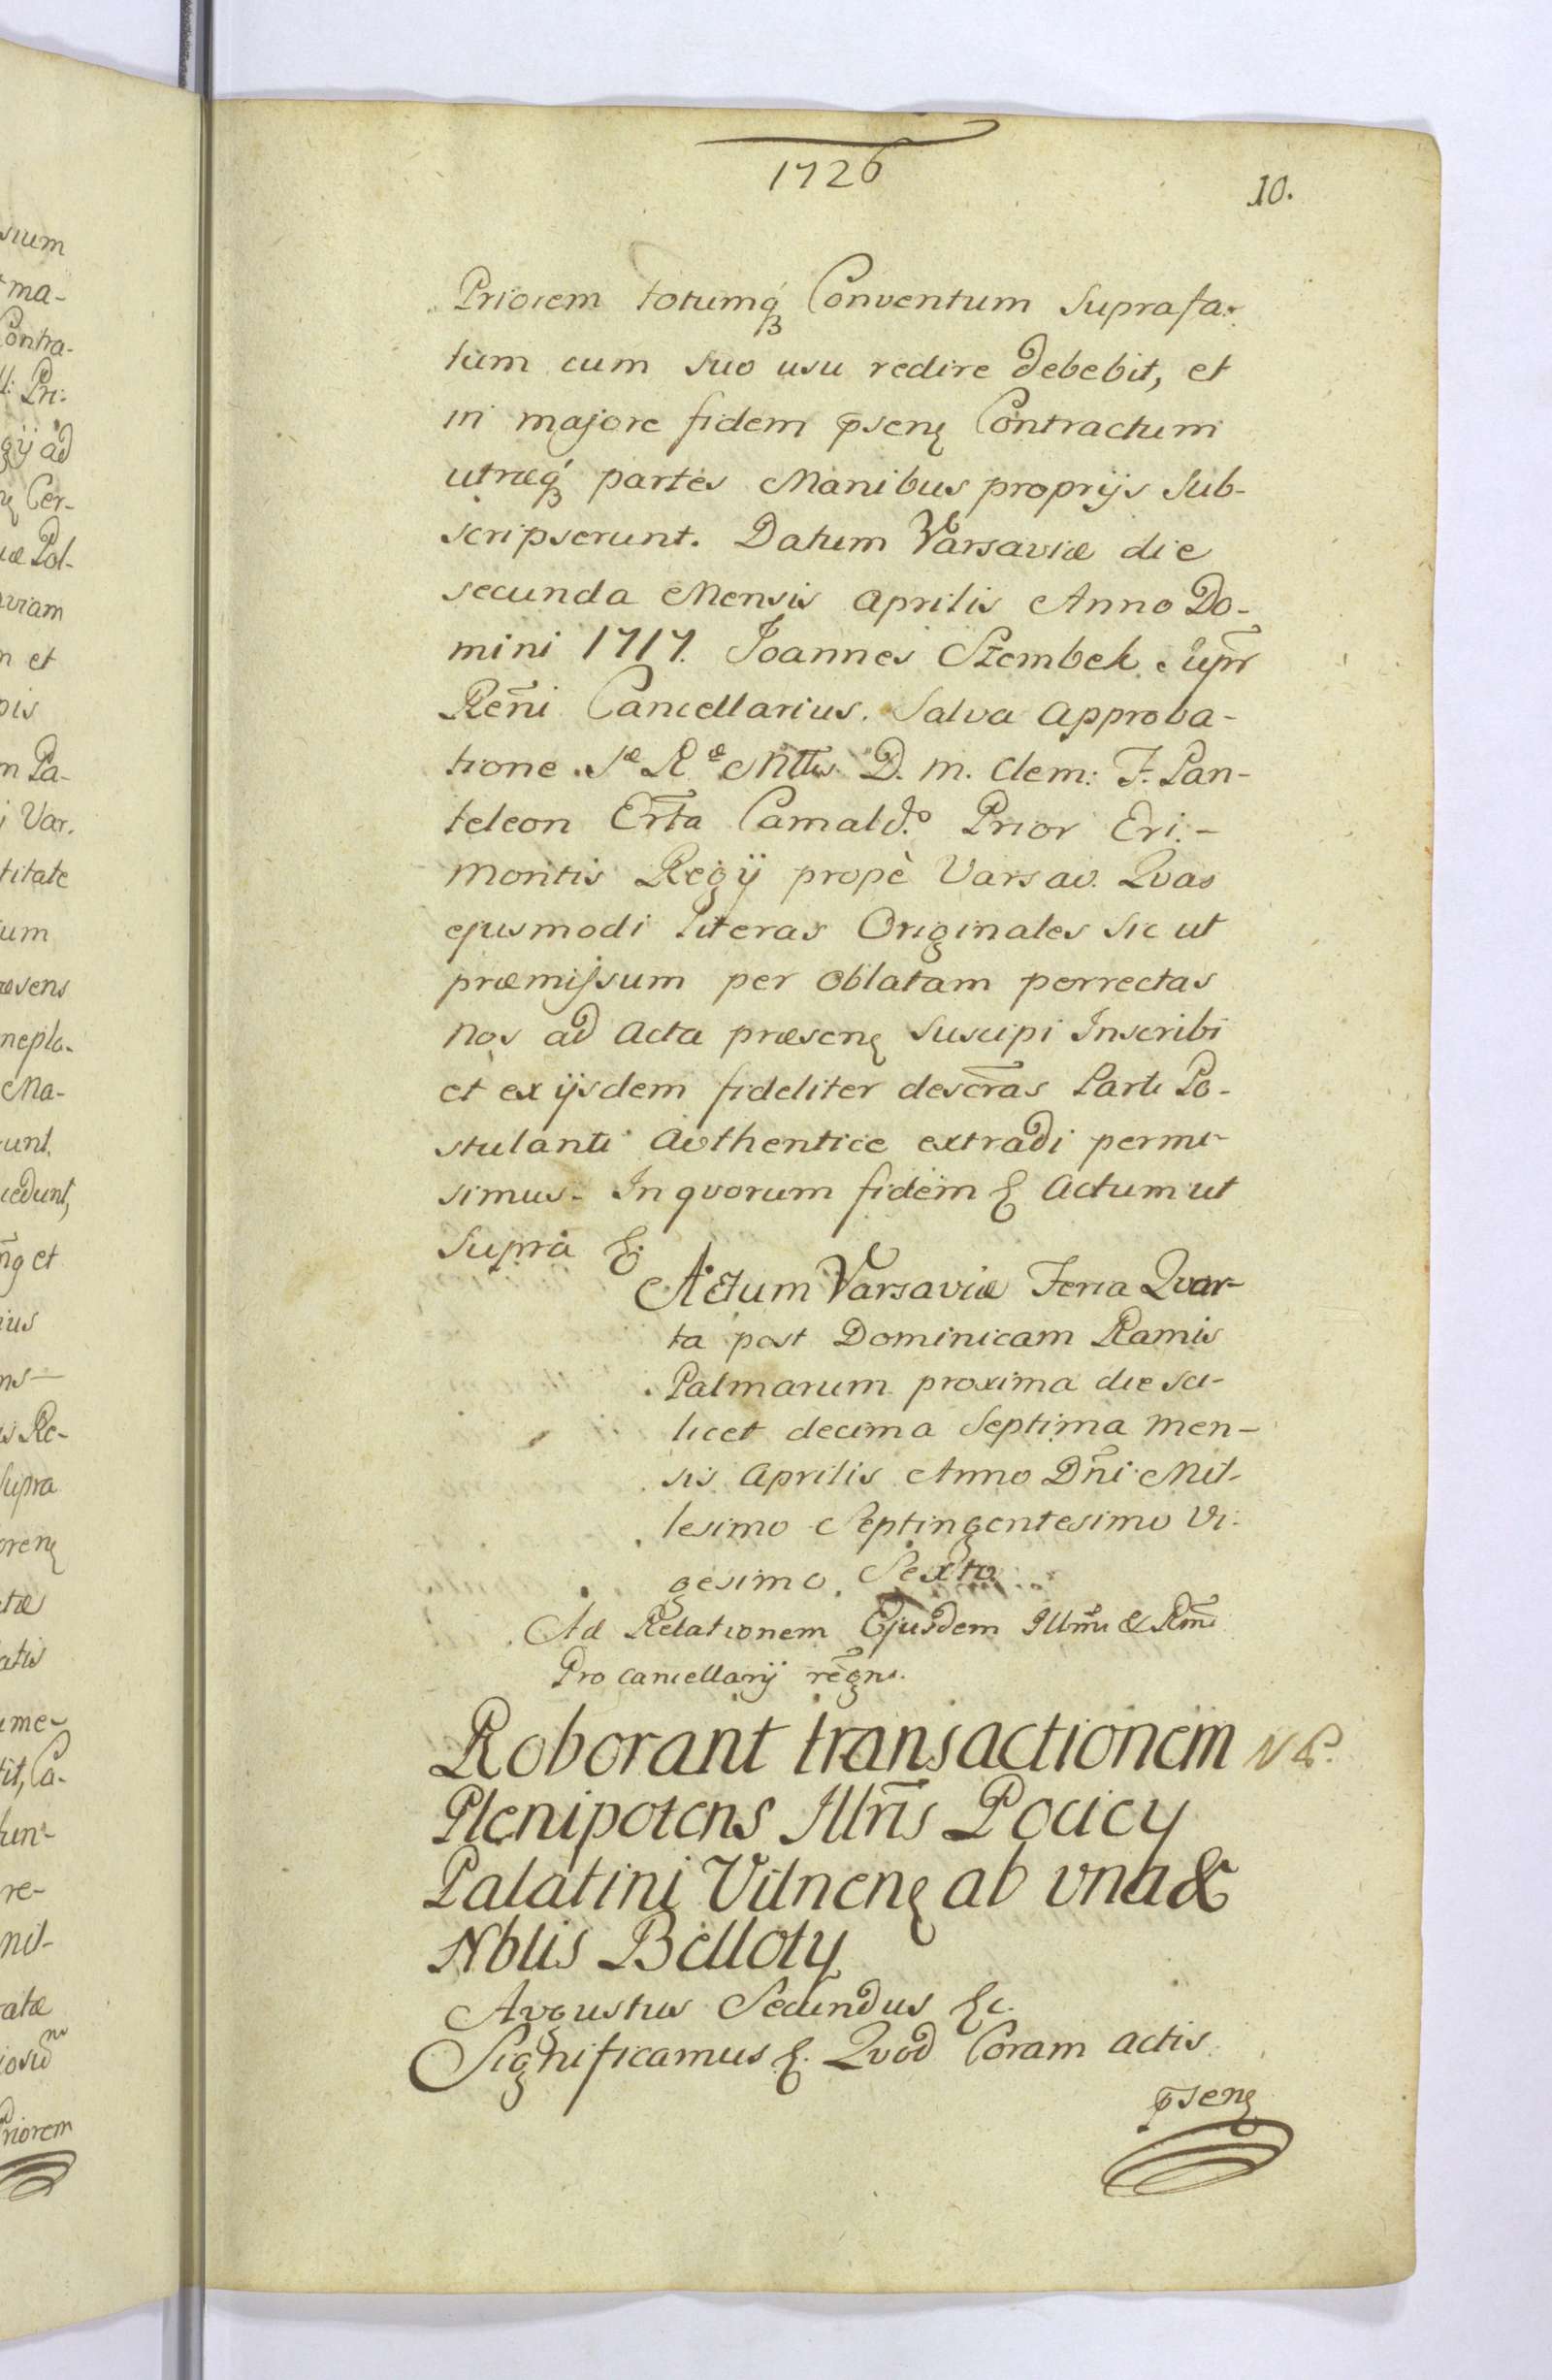 1726
10.
Priorem totumq́₃ Conventum Suprafa-
tum cum suo usu redire debebit, et
in majore fidem p̄senꝫ Contractum
utræq́₃ partes Manibus proprijs Sub-
scripserunt. Datum Varsaviæ die
secunda Mensis Aprilis Anno Do-
mini 1717. Joannes Szembek Supr̄
Reñi Cancellarius. Salva Approba-
tione Sæ Ræ Mttis D. M. Clem: F. Pan-
teleon Er̄ta Camald.º Prior Eri-
Montis Regij propè Varsav. Qvas
ejusmodi Literas Originales sic ut
præmissum per Oblatam porrectas
Nos ad Acta præsenꝫ Suscipi Inscribi
et ex ijsdem fideliter descr̄as Parti Po-
stulanti Avthentice extradi permi-
simus. In qvorum fidem &. Actum ut
Supra &.
Actum Varsaviæ Feria Qvar-
ta post Dominicam Ramis
Palmarum proxima die sci-
licet decima Septima Men-
sis Aprilis Anno Dñi Mil-
lesimo Septingentesimo Vi-
gesimo Sexto
Ad Relationem Ejusdem Illmi & Rmi
Pro cancellarij regni.
Roborant transactionem
Plenipotens Illris̄ Pociey
Palatini Vilnenꝫ ab una &
Nblis Belloty
Avgustus Secundus &c.
Significamus &. Qvod Coram actis
p̄senꝫ
sium
ma-
Contra-
Pri:
gij ad
Cer-
Pol-
viam
n et
pis
Pa-
Var.
titate
um
æsens
neplo-
Ma-
unt.
cedunt,
et
ius
ns
Re-
Supra
orenꝫ
tæ
atis
ume-
tit, Ca-
tun-
re-
mil-
ratæ
Priorem